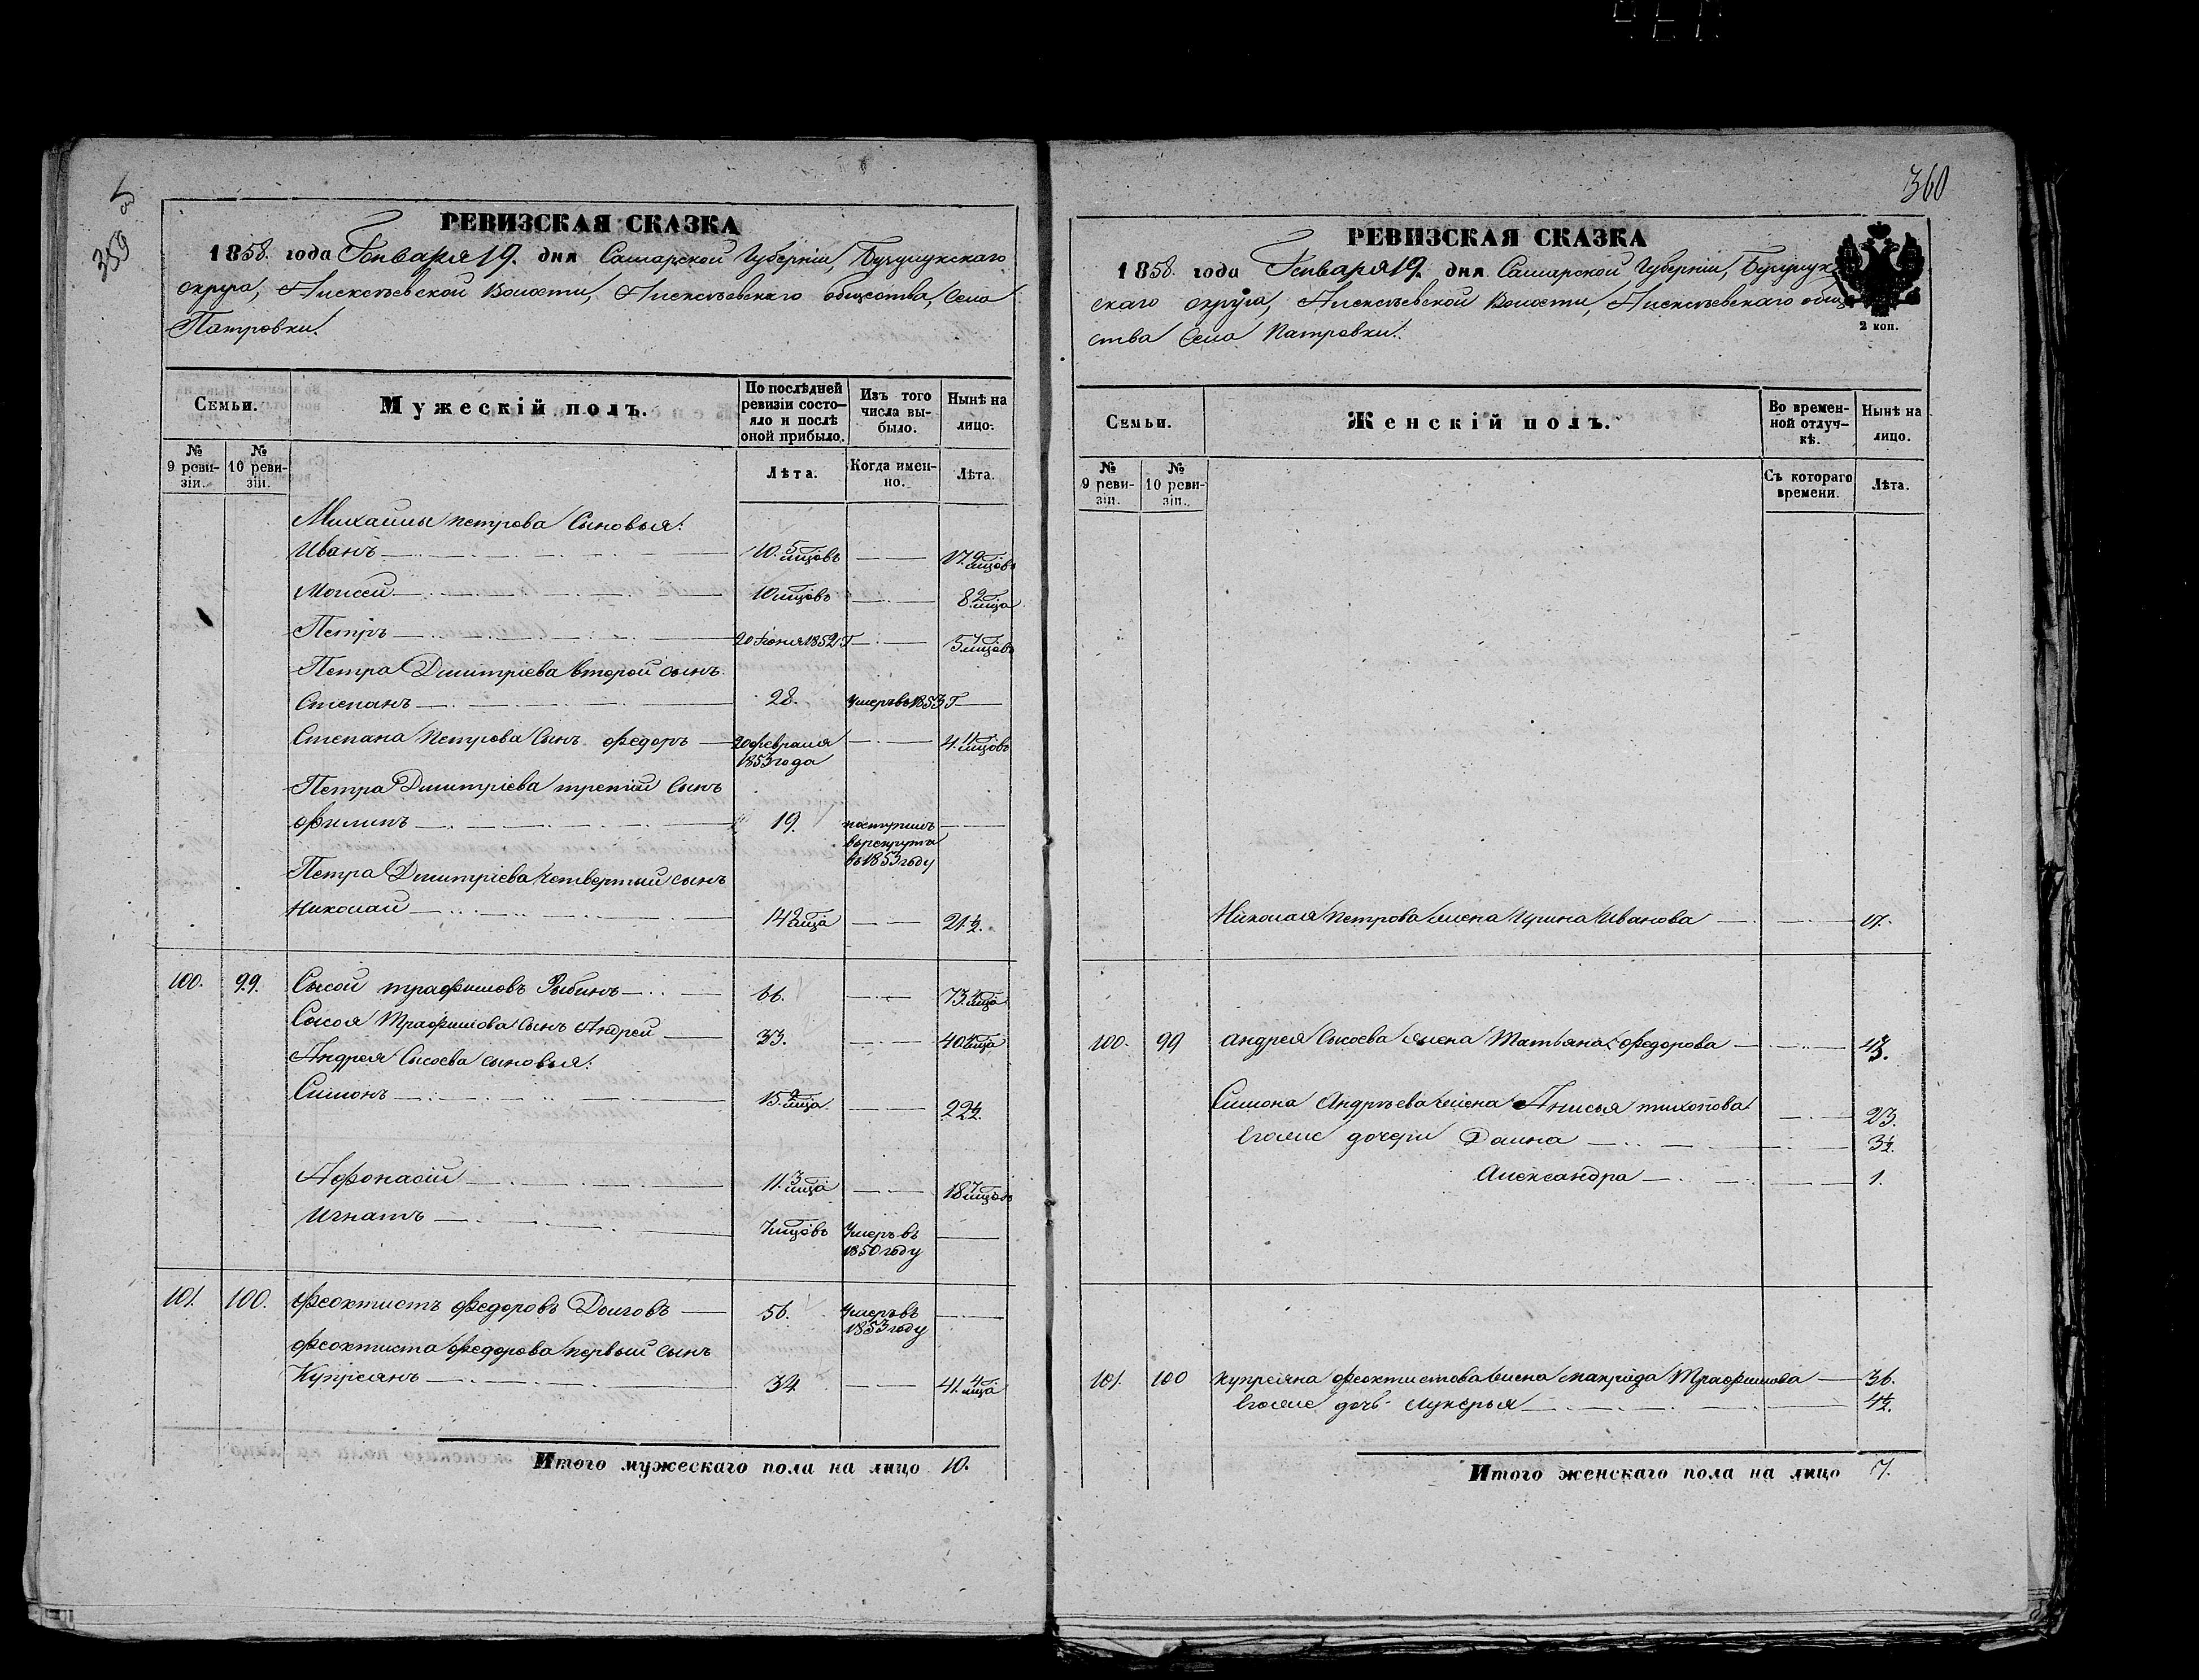 359 об
РЕВИЗСКАЯ СКАЗКА
1858. года Генваря 19. дня Самарской Губерніи, Бузулукскаго
округа, Алексѣевской Волости, Алексѣевскаго общества, Села
Патровки.
Семьи.
Мужескій полъ.
По послѣдней ревизіи состо-яло и послѣ оной прибыло.
Изъ того числа вы-было.
Нынѣ на лицо.
№ 9 реви-зіи.
№ 10 реви-зіи.
Лѣта.
Когда имен-но.
Лѣта.
Михаилы Петрова Сыновья:
Иванъ 10. 5 мцовъ
Моисей 10 мцовъ 8. 2 мца
Петръ 20 Іюня 1852 Г 5. 7 мцовъ
Петра Дмитріева второй сынъ
Степанъ 28. Умеръ въ 1853 Г
Степана Петрова Сынъ Федоръ 20 февраля 1853 года 4. 11 мцовъ
Петра Дмитріева третій Сынъ
Филипъ 19. поступилъ въ рекруты въ 1853 году
Петра Дмитріева Четвертый сынъ
Николай 14 2 мца 21 ½.
100. 99. Сысой Трафимовъ Рыбинъ 66. 73. 4 мца
Сысоя Трафимова Сынъ Андрей 33. 40 4 мца
Андрея Сысоева сыновья:
Симонъ 15. 2 мца 22 ½
Афонасій 11. 3 мца 18 7 мцовъ
Игнатъ 7 мцовъ Умеръ въ 1850 году
101. 100. Феоктистъ Федоровъ Долговъ 56. Умеръ въ 1853 году
Феоктиста Федорова первый сынъ
Купреянъ 34 41. 4 мца
Итого мужескаго пола на лицо 10.
360
РЕВИЗСКАЯ СКАЗКА
1858. года Генваря 19. дня Самарской Губерніи, Бузулук
скаго округа, Алексѣевской Волости, Алексѣевскаго обще
ства Села Патровки.
2 коп.
Семьи.
Женскій полъ.
Во времен-ной отлуч-кѣ.
Нынѣ на лицо.
№ 9 реви-зіи.
№ 10 реви-зіи.
Съ котораго времени.
Лѣта.
Николая Петрова жена Ирина Иванова
100. 99 Андрея Сысоева жена Татьяна Федорова
Симона Андрѣева жена Анисья Тихонова 23.
Его же дочери Домна 3½.
Александра 1.
101. 100 Купреяна Феоктистова жена Макрида Трафимова 36.
Его же дочь Лукерья 4½.
Итого женскаго пола на лицо 7.